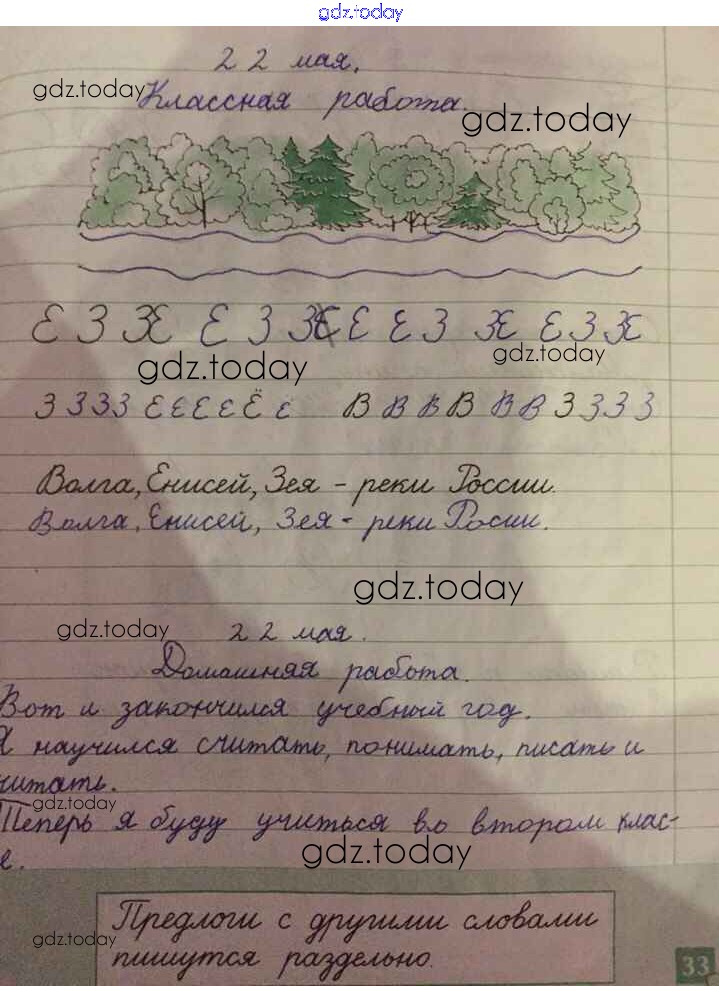 gdz.today
22 мая.
gdz.today
Классная работа.
gdz.today
Е З Ж Е З Ж Е Е З Ж Е З Ж
gdz.today
gdz.today
З З З З Е Е Е Е Ё Е В В В В В В З З З З
Волга, Енисей, Зея - реки России.
Волга, Енисей, Зея - реки Росии.
gdz.today
gdz.today
22 мая.
Домашняя работа.
Вот и закончился учебный год.
Я научился считать, понимать, писать и
читать.
gdz.today
Теперь я буду учиться во втором клас-
е.
gdz.today
Предлоги с другими словами
gdz.today
пишутся раздельно.
33